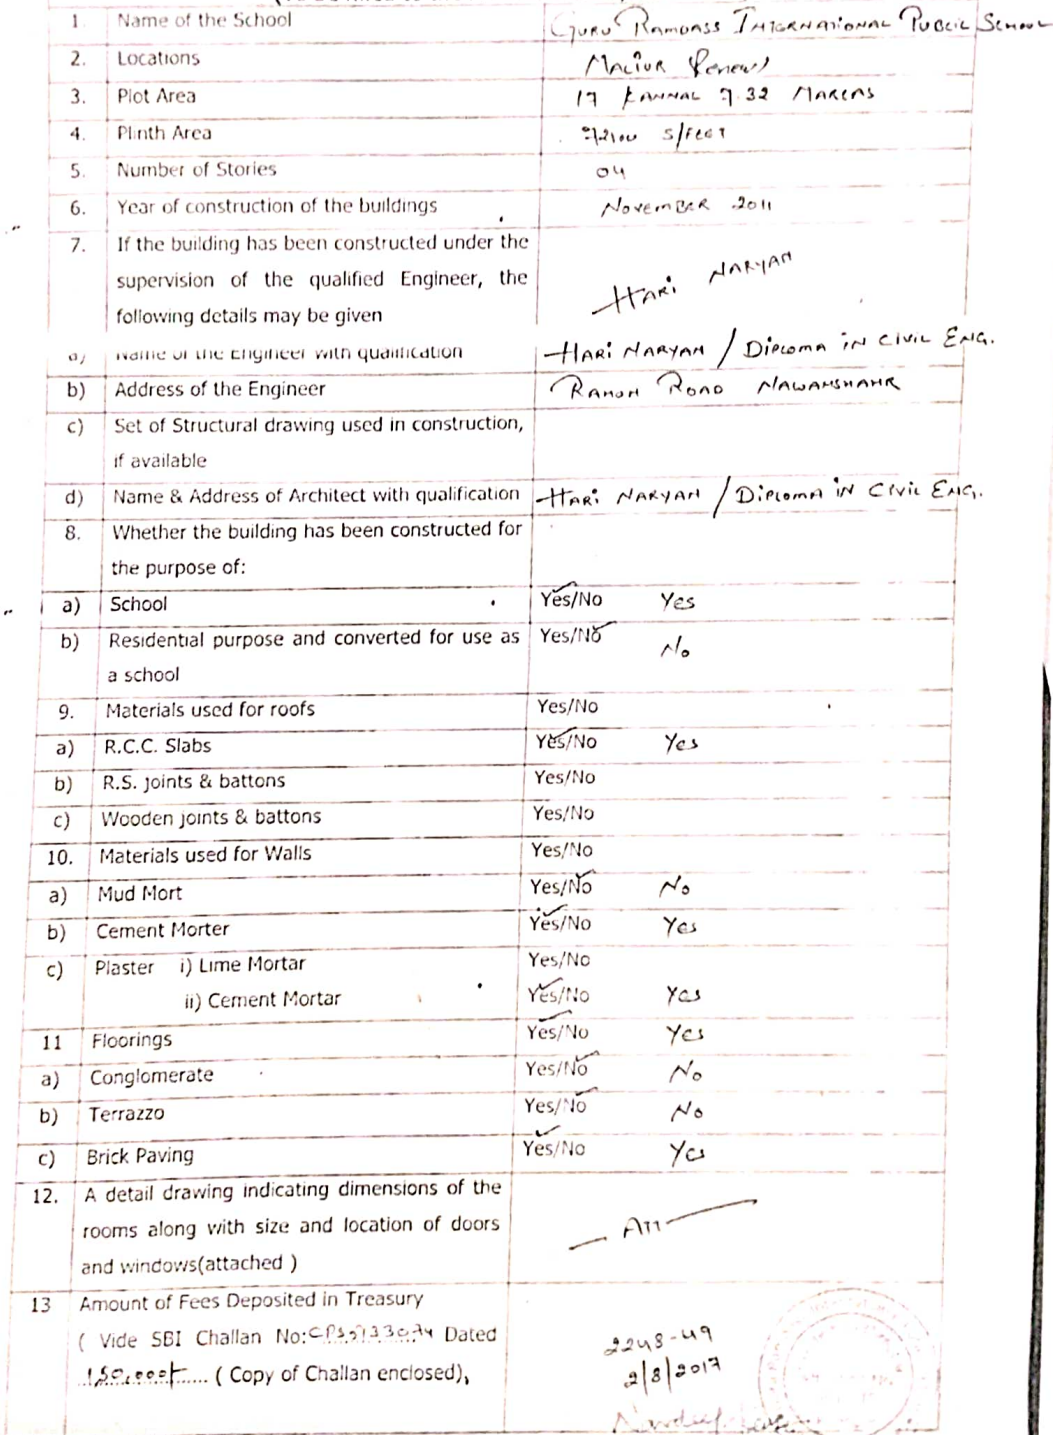 1. Name of the School GURU RAMDASS INTERNATIONAL PUBLIC SCHOOL
2. Locations
3. Plot Area 17 KANNAL 7.32 MARLAS
4. Plinth Area S/FEET
5. Number of Stories 04
6. Year of construction of the buildings NOVEMBER 2011
7. If the building has been constructed under the
supervision of the qualified Engineer, the HARI NARYAN
following details may be given
a) Name of the Engineer with qualification HARI NARYAN / DIPLOMA IN CIVIL ENG.
b) Address of the Engineer RAHON ROAD NAWANSHAHR
c) Set of Structural drawing used in construction,
if available
d) Name & Address of Architect with qualification HARI NARYAN / DIPLOMA IN CIVIL ENG.
8. Whether the building has been constructed for
the purpose of:
a) School Yes/No Yes
b) Residential purpose and converted for use as Yes/No No
a school
9. Materials used for roofs Yes/No
a) R.C.C. Slabs Yes/No Yes
b) R.S. joints & battons Yes/No
c) Wooden joints & battons Yes/No
10. Materials used for Walls Yes/No
a) Mud Mort Yes/No No
b) Cement Morter Yes/No Yes
c) Plaster i) Lime Mortar Yes/No
ii) Cement Mortar Yes/No Yes
11 Floorings Yes/No Yes
a) Conglomerate Yes/No No
b) Terrazzo Yes/No No
c) Brick Paving Yes/No Yes
12. A detail drawing indicating dimensions of the
rooms along with size and location of doors ATT
and windows(attached )
13 Amount of Fees Deposited in Treasury
( Vide SBI Challan No: Dated 2248-49
( Copy of Challan enclosed), 2/8/2017